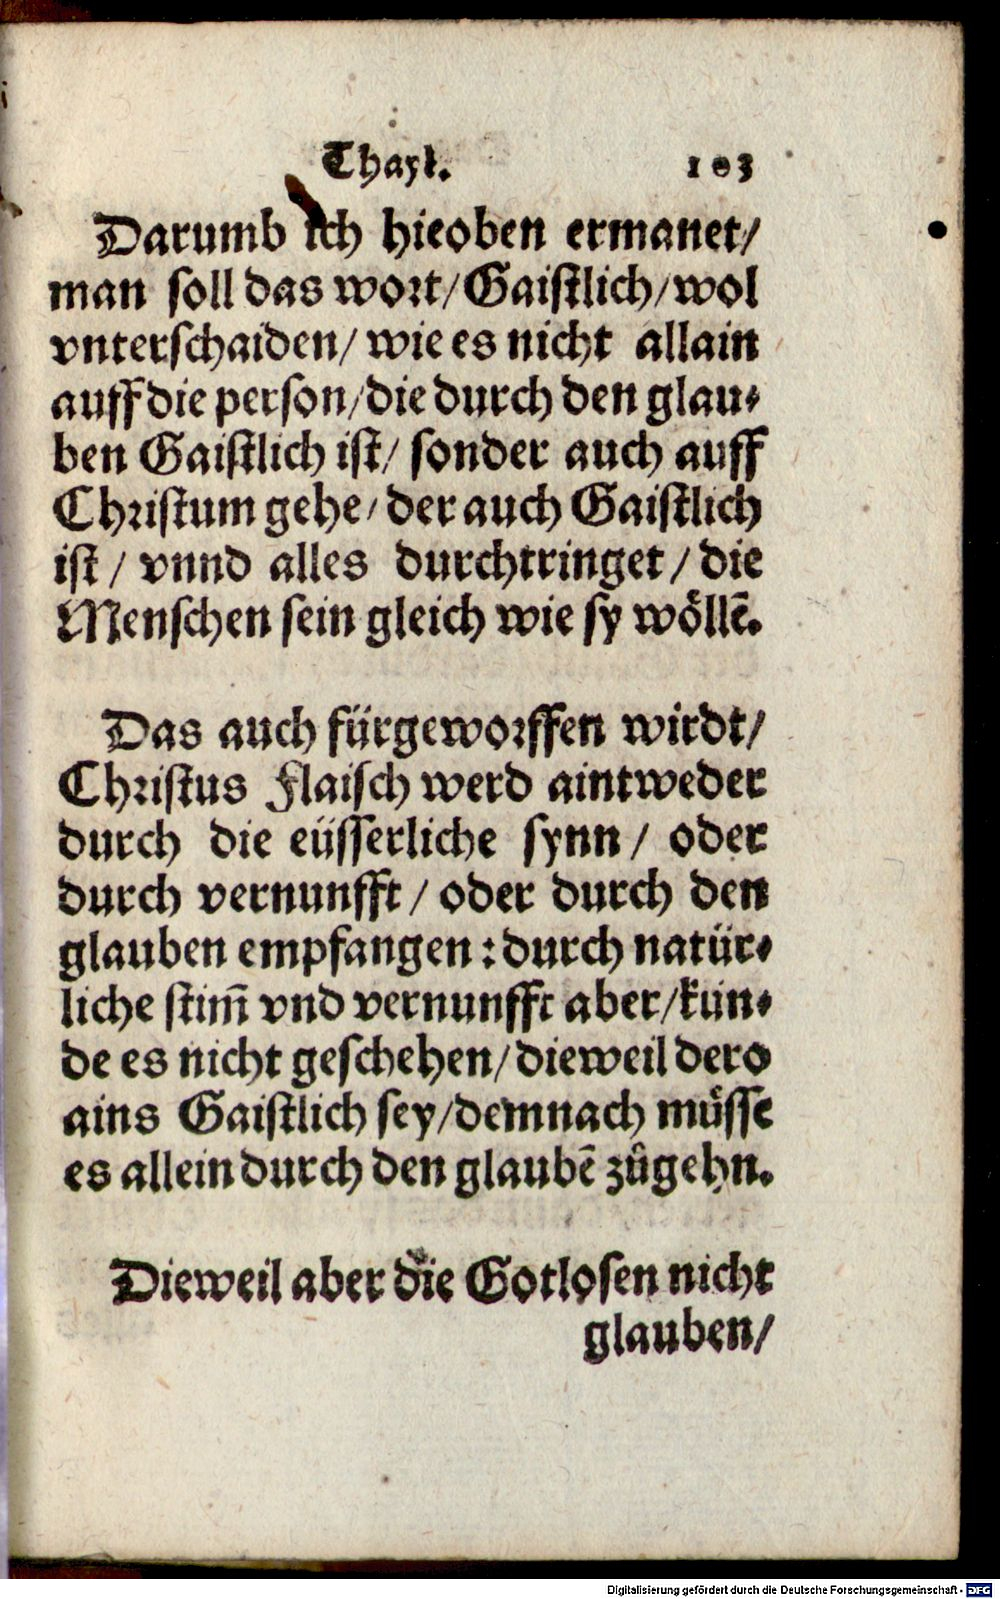 Thayl. 103
Darumb ich hieoben ermanet/
man soll das wort/Gaistlich/wol
vnterschaiden/ wie es nicht allain
auff die person/die durch den glau⸗
ben Gaistlich ist/ sonder auch auff
Christum gehe/ der auch Gaistlich
ist / vnnd alles durchtringet / die
Menschen sein gleich wie sy wöllē.
Das auch fürgeworffen wirdt/
Christus Flaisch werd aintweder
durch die eüsserliche synn / oder
durch vernunfft / oder durch den
glauben empfangen : durch natür⸗
liche stim̄ vnd vernunfft aber/kün⸗
de es nicht geschehen/dieweil dero
ains Gaistlich sey/demnach müsse
es allein durch den glaubē zůgehn.
Dieweil aber die Gotlosen nicht
glauben/
Digitalisierung gefördert durch die Deutsche Forschungsgemeinschaft - DFG